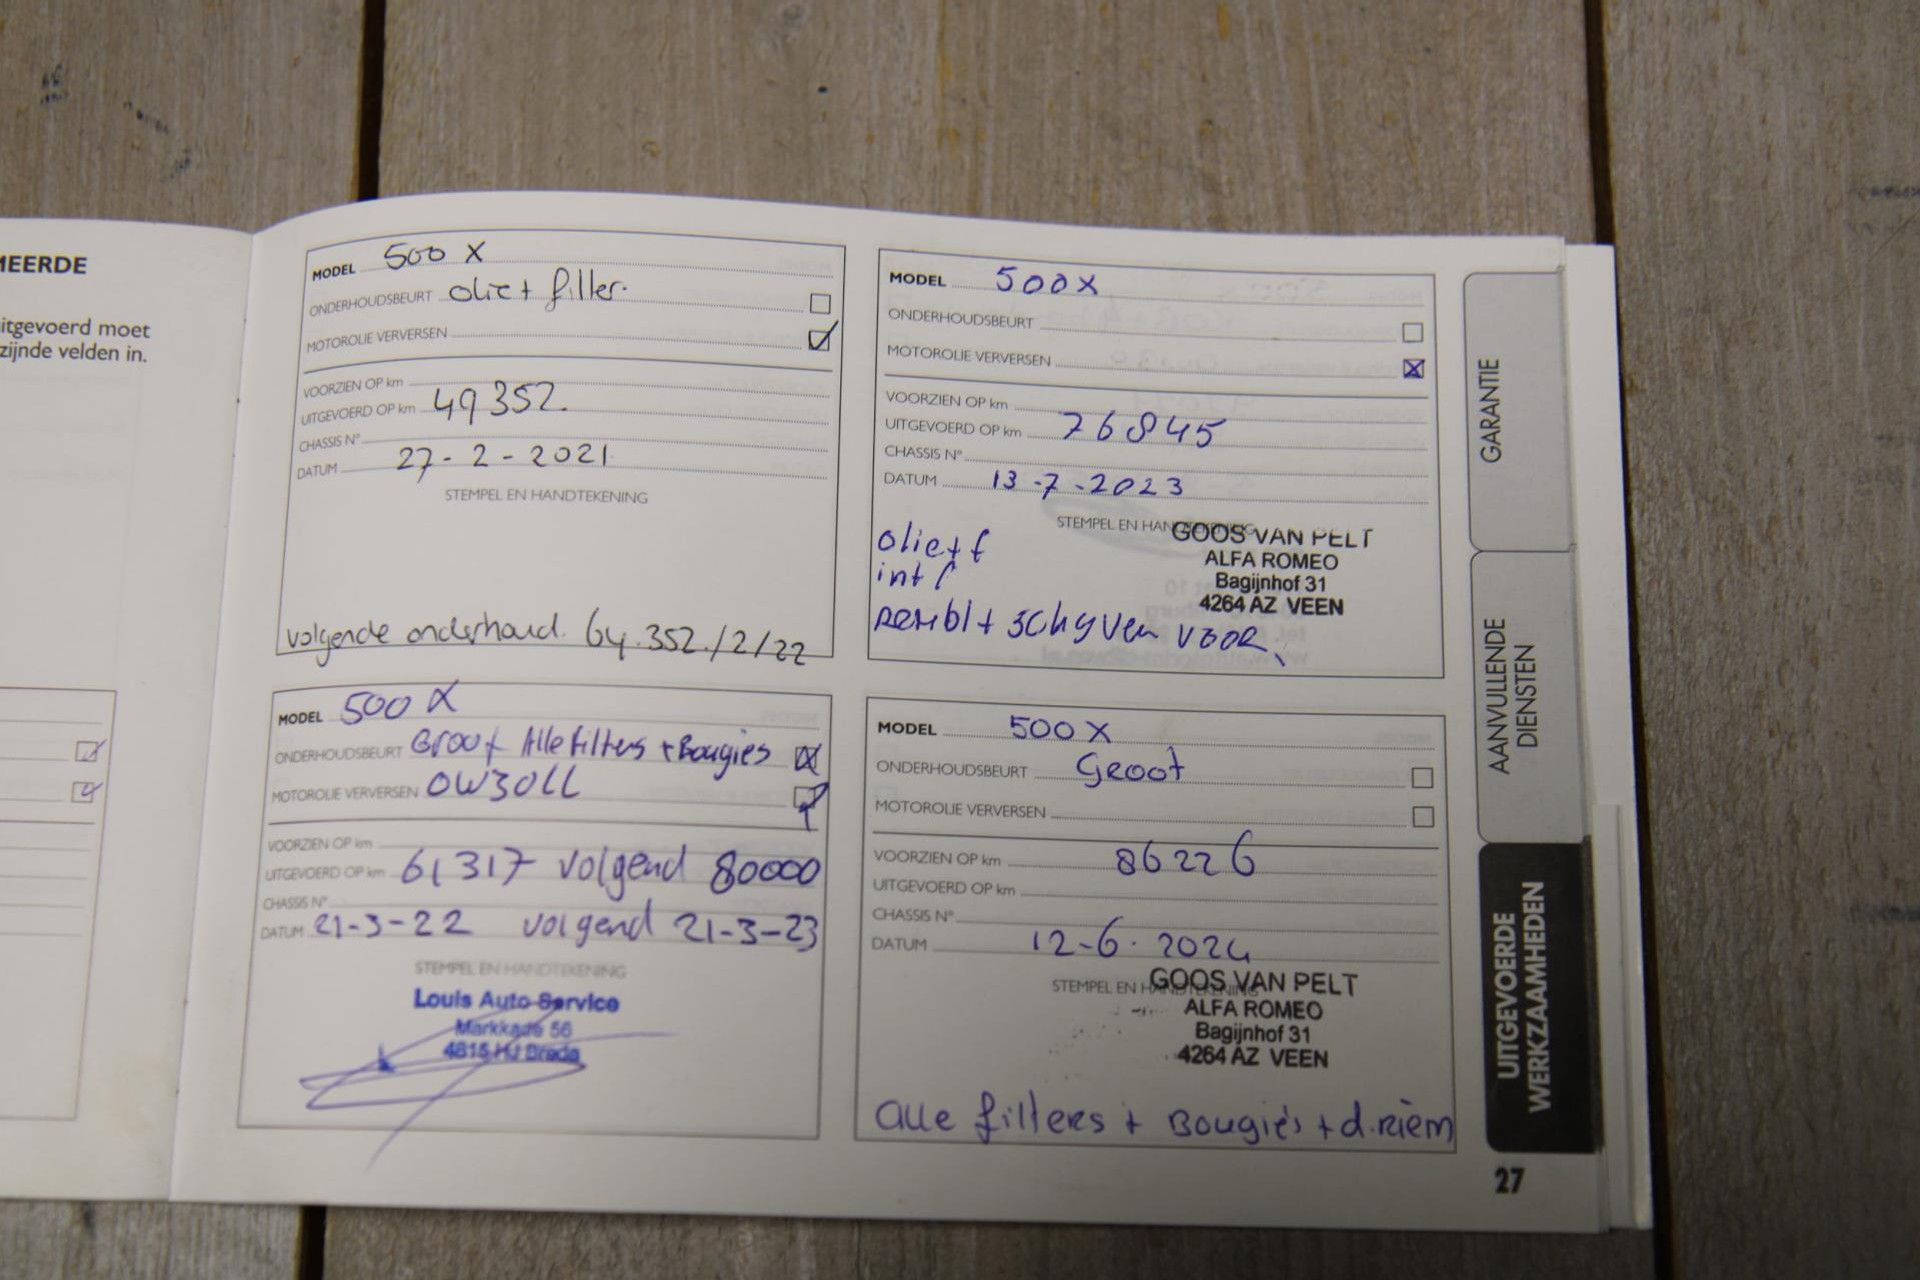 MEERDE
itgevoerd moet
zijnde velden in.
MODEL 500 X
ONDERHOUDSBEURT olie + filter.
MOTOROLIE VERVERSEN
VOORZIEN OP km
UITGEVOERD OP km 49352.
CHASSIS N°
DATUM 27-2-2021
STEMPEL EN HANDTEKENING
volgende onderhoud. 64.352./2/22
MODEL 500 X
ONDERHOUDSBEURT Groot Alle filters + Bougies
MOTOROLIE VERVERSEN 0W30LL
VOORZIEN OP km
UITGEVOERD OP km 61317 volgend 80000
CHASSIS N°
DATUM 21-3-22 volgend 21-3-23
STEMPEL EN HANDTEKENING
Louis Auto Service
Markkade 56
4815 HJ Breda
MODEL 500X
ONDERHOUDSBEURT
MOTOROLIE VERVERSEN
VOORZIEN OP km
UITGEVOERD OP km 76845
CHASSIS N°
DATUM 13-7-2023
STEMPEL EN HANDTEKENING
GOOS VAN PELT
ALFA ROMEO
Bagijnhof 31
4264 AZ VEEN
olie + f
int f
Rembl + schyven VOOR
MODEL 500 X
ONDERHOUDSBEURT Groot
MOTOROLIE VERVERSEN
VOORZIEN OP km 86226
UITGEVOERD OP km
CHASSIS N°
DATUM 12-6-2024
STEMPEL EN HANDTEKENING
GOOS VAN PELT
ALFA ROMEO
Bagijnhof 31
4264 AZ VEEN
alle filters + Bougies + d.riem
GARANTIE
AANVULLENDE
DIENSTEN
UITGEVOERDE
WERKZAAMHEDEN
27